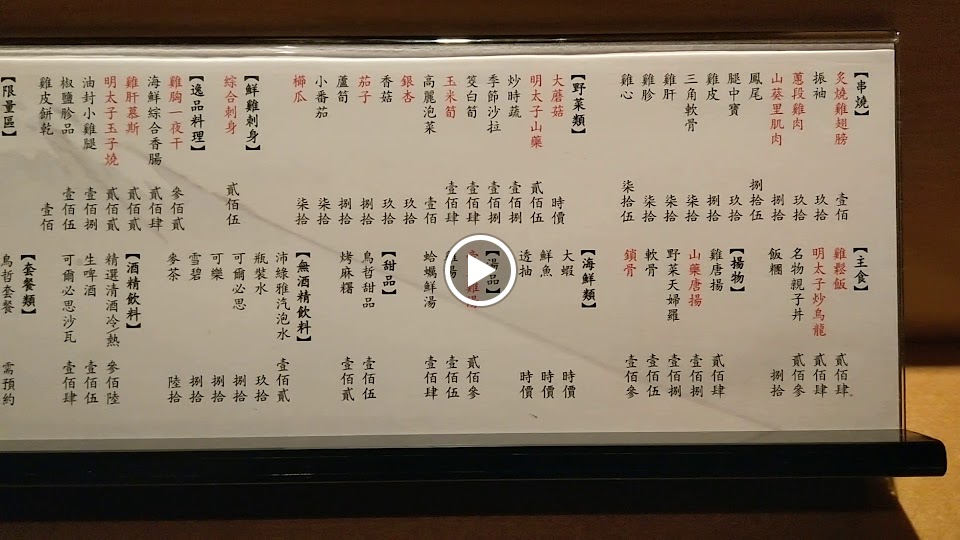 【串燒】
炙燒雞翅膀 壹佰
振袖 玖拾
蔥段雞肉 玖拾
山葵里肌肉 捌拾
鳳尾 捌拾伍
腿中寶 玖拾
雞皮 捌拾
三角軟骨 柒拾
雞肝 柒拾
雞胗 柒拾
雞心 柒拾伍
【野菜類】
大蘑菇 時價
明太子山藥 貳佰伍
炒時蔬 壹佰捌
季節沙拉 壹佰捌
筊白筍 壹佰捌
玉米筍 壹佰肆
高麗泡菜 壹佰
銀杏 玖拾
香菇 玖拾
茄子 捌拾
蘆筍 捌拾
小番茄 柒拾
櫛瓜 柒拾
【鮮雞刺身】
綜合刺身 貳佰伍
【逸品料理】
雞胸一夜干 參佰貳
海鮮綜合香腸 貳佰肆
雞肝慕斯 貳佰貳
明太子玉子燒 貳佰貳
油封小雞腿 壹佰捌
椒鹽胗品 壹佰伍
雞皮餅乾 壹佰
【限量區】
【主食】
雞鬆飯 貳佰肆
明太子炒烏龍 貳佰肆
名物親子丼 貳佰參
飯糰 捌拾
【揚物】
雞唐揚 貳佰肆
山藥唐揚 壹佰捌
野菜天婦羅 壹佰捌
軟骨 壹佰伍
鎖骨 壹佰參
【海鮮類】
大蝦 時價
鮮魚 時價
透抽 時價
【湯品】
貳佰參
湯 壹佰伍
蛤蠣鮮湯 壹佰肆
【甜品】
烏哲甜品 壹佰伍
烤麻糬 壹佰貳
【無酒精飲料】
沛綠雅汽泡水 壹佰貳
瓶裝水 玖拾
可爾必思 捌拾
可樂 捌拾
雪碧 捌拾
麥茶 陸拾
【酒精飲料】
精選清酒冷/熱 參佰陸
生啤酒 壹佰伍
可爾必思沙瓦 壹佰肆
【套餐類】
烏哲套餐 需預約